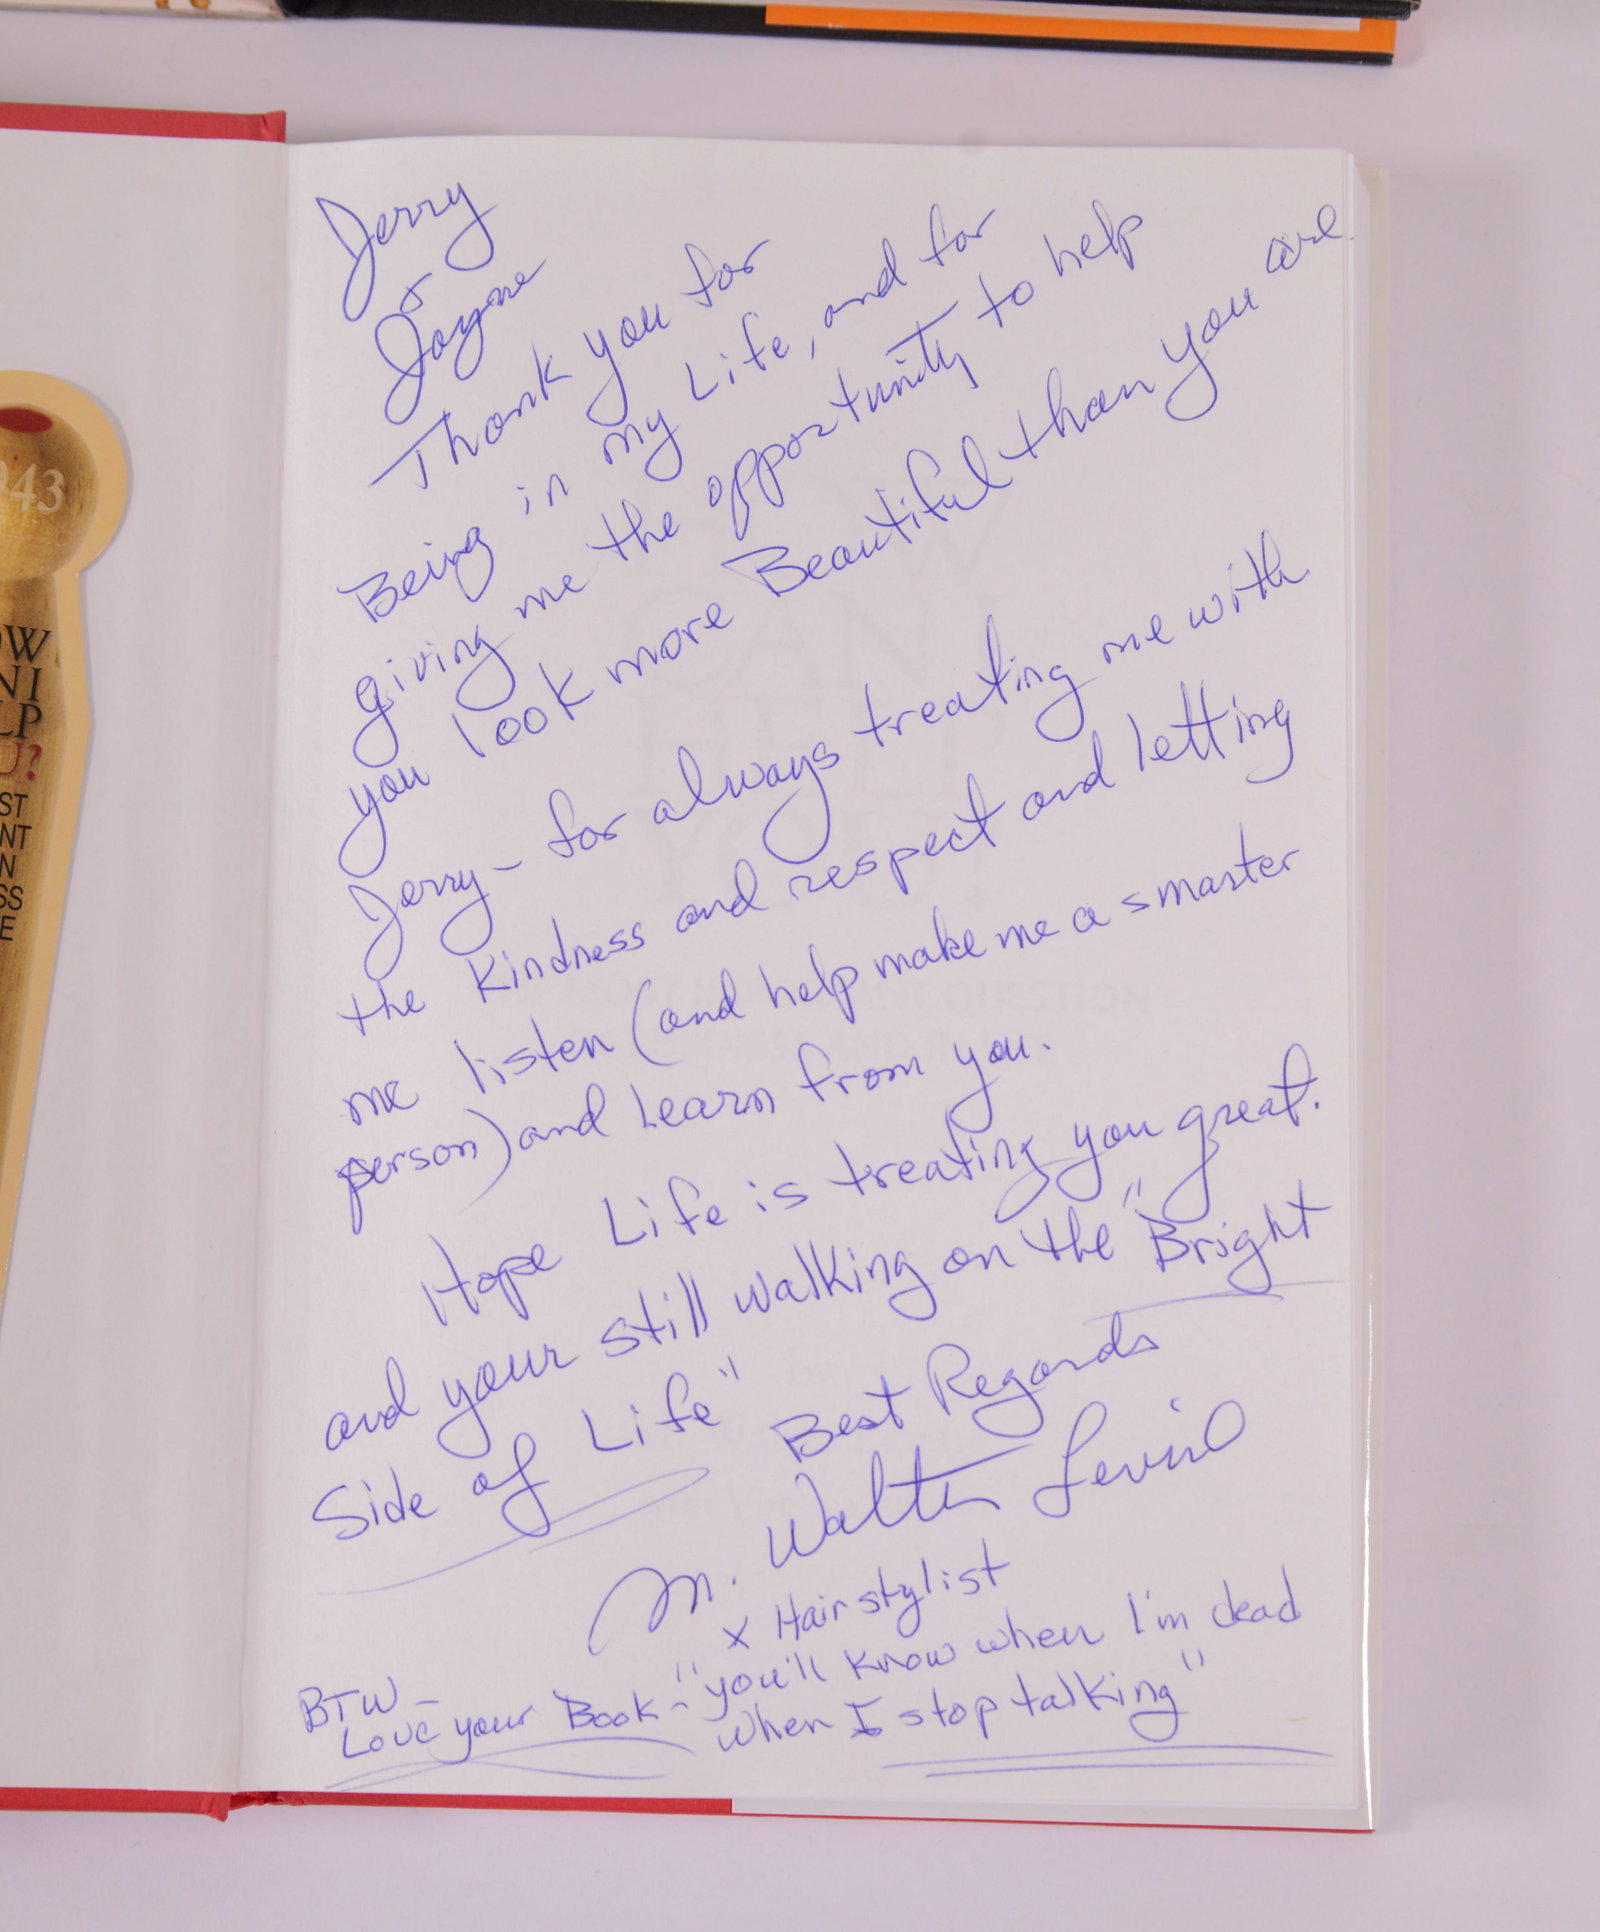 Jerry
&
Jayne
Thank you for
Being in my Life, and for
giving me the opportunity to help
you look more Beautiful than you are
Jerry - for always treating me with
the kindness and respect and letting
me listen (and help make me a smarter
person) and learn from you.
Hope Life is treating you great.
and your still walking on the "Bright
Side of Life"
Best Regards
M. Walter Levine
x Hairstylist
BTW -
Love your Book - "you'll know when I'm dead
when I stop talking"
943
OW
NI
LP
U?
ST
NT
N
SS
E